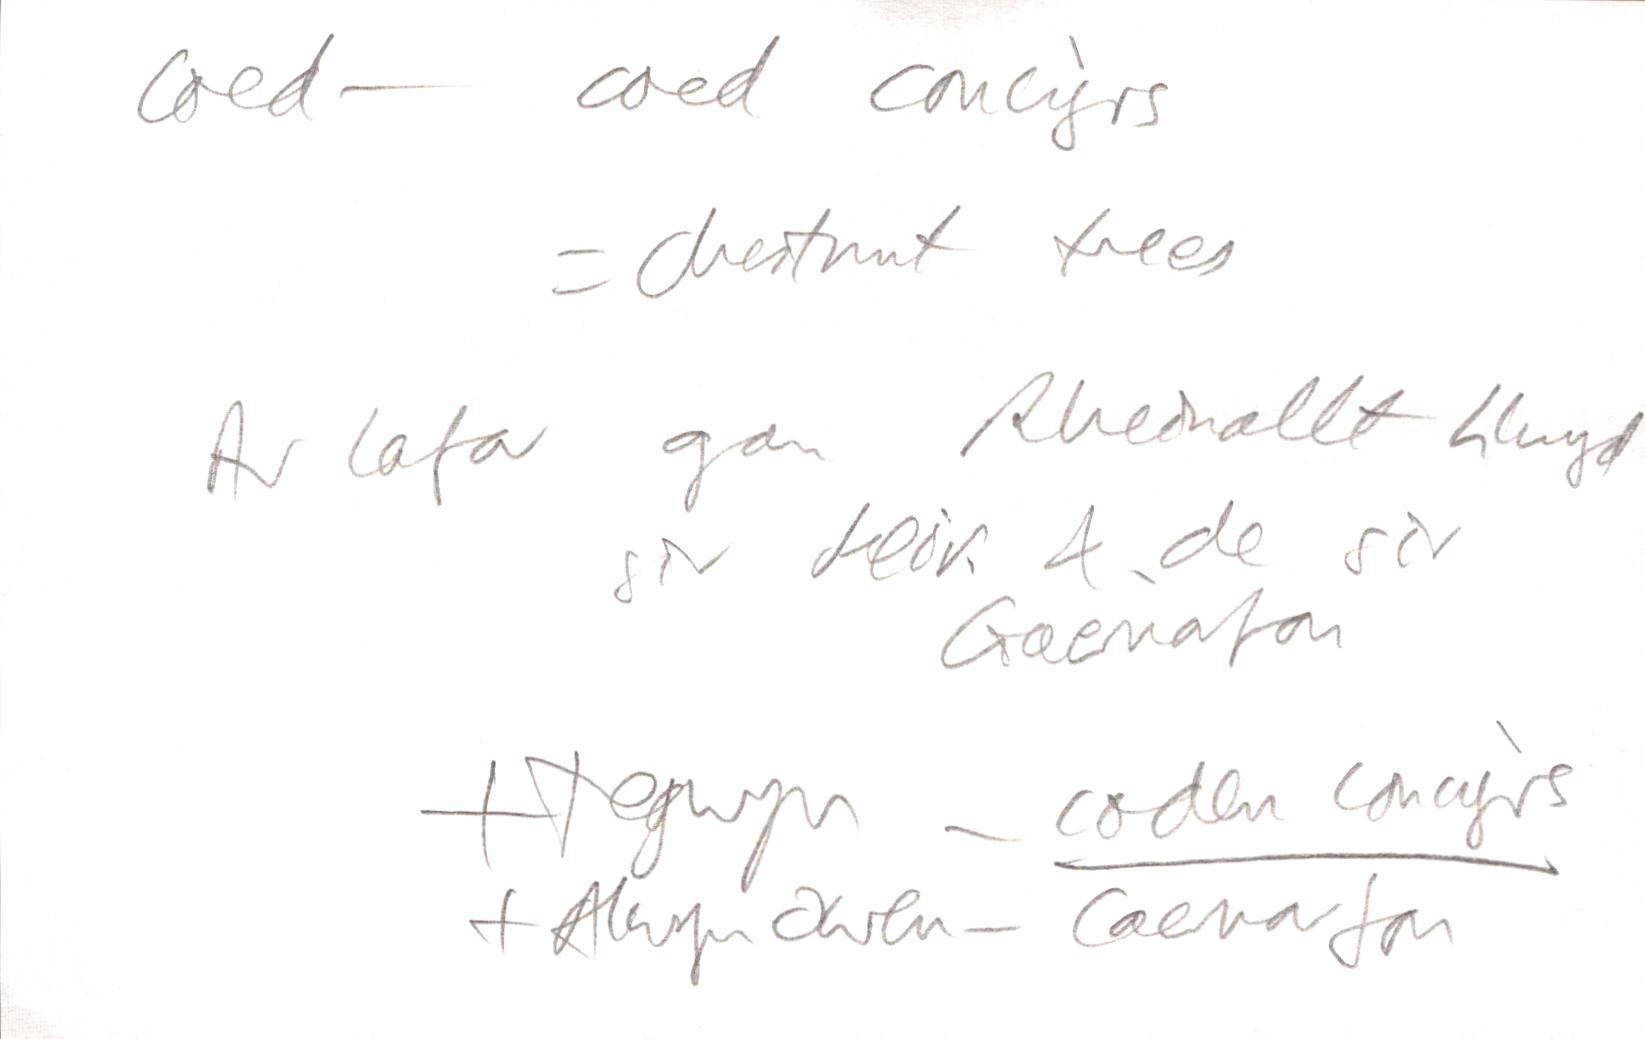 coed — coed concỳrs
= chestnut trees
Ar lafar gan Rheinallt Llwyd
sir
de sir
Gaernarfon
+ Tegwyn – coden concỳrs
+ Alwyn Owen – Caernarfon